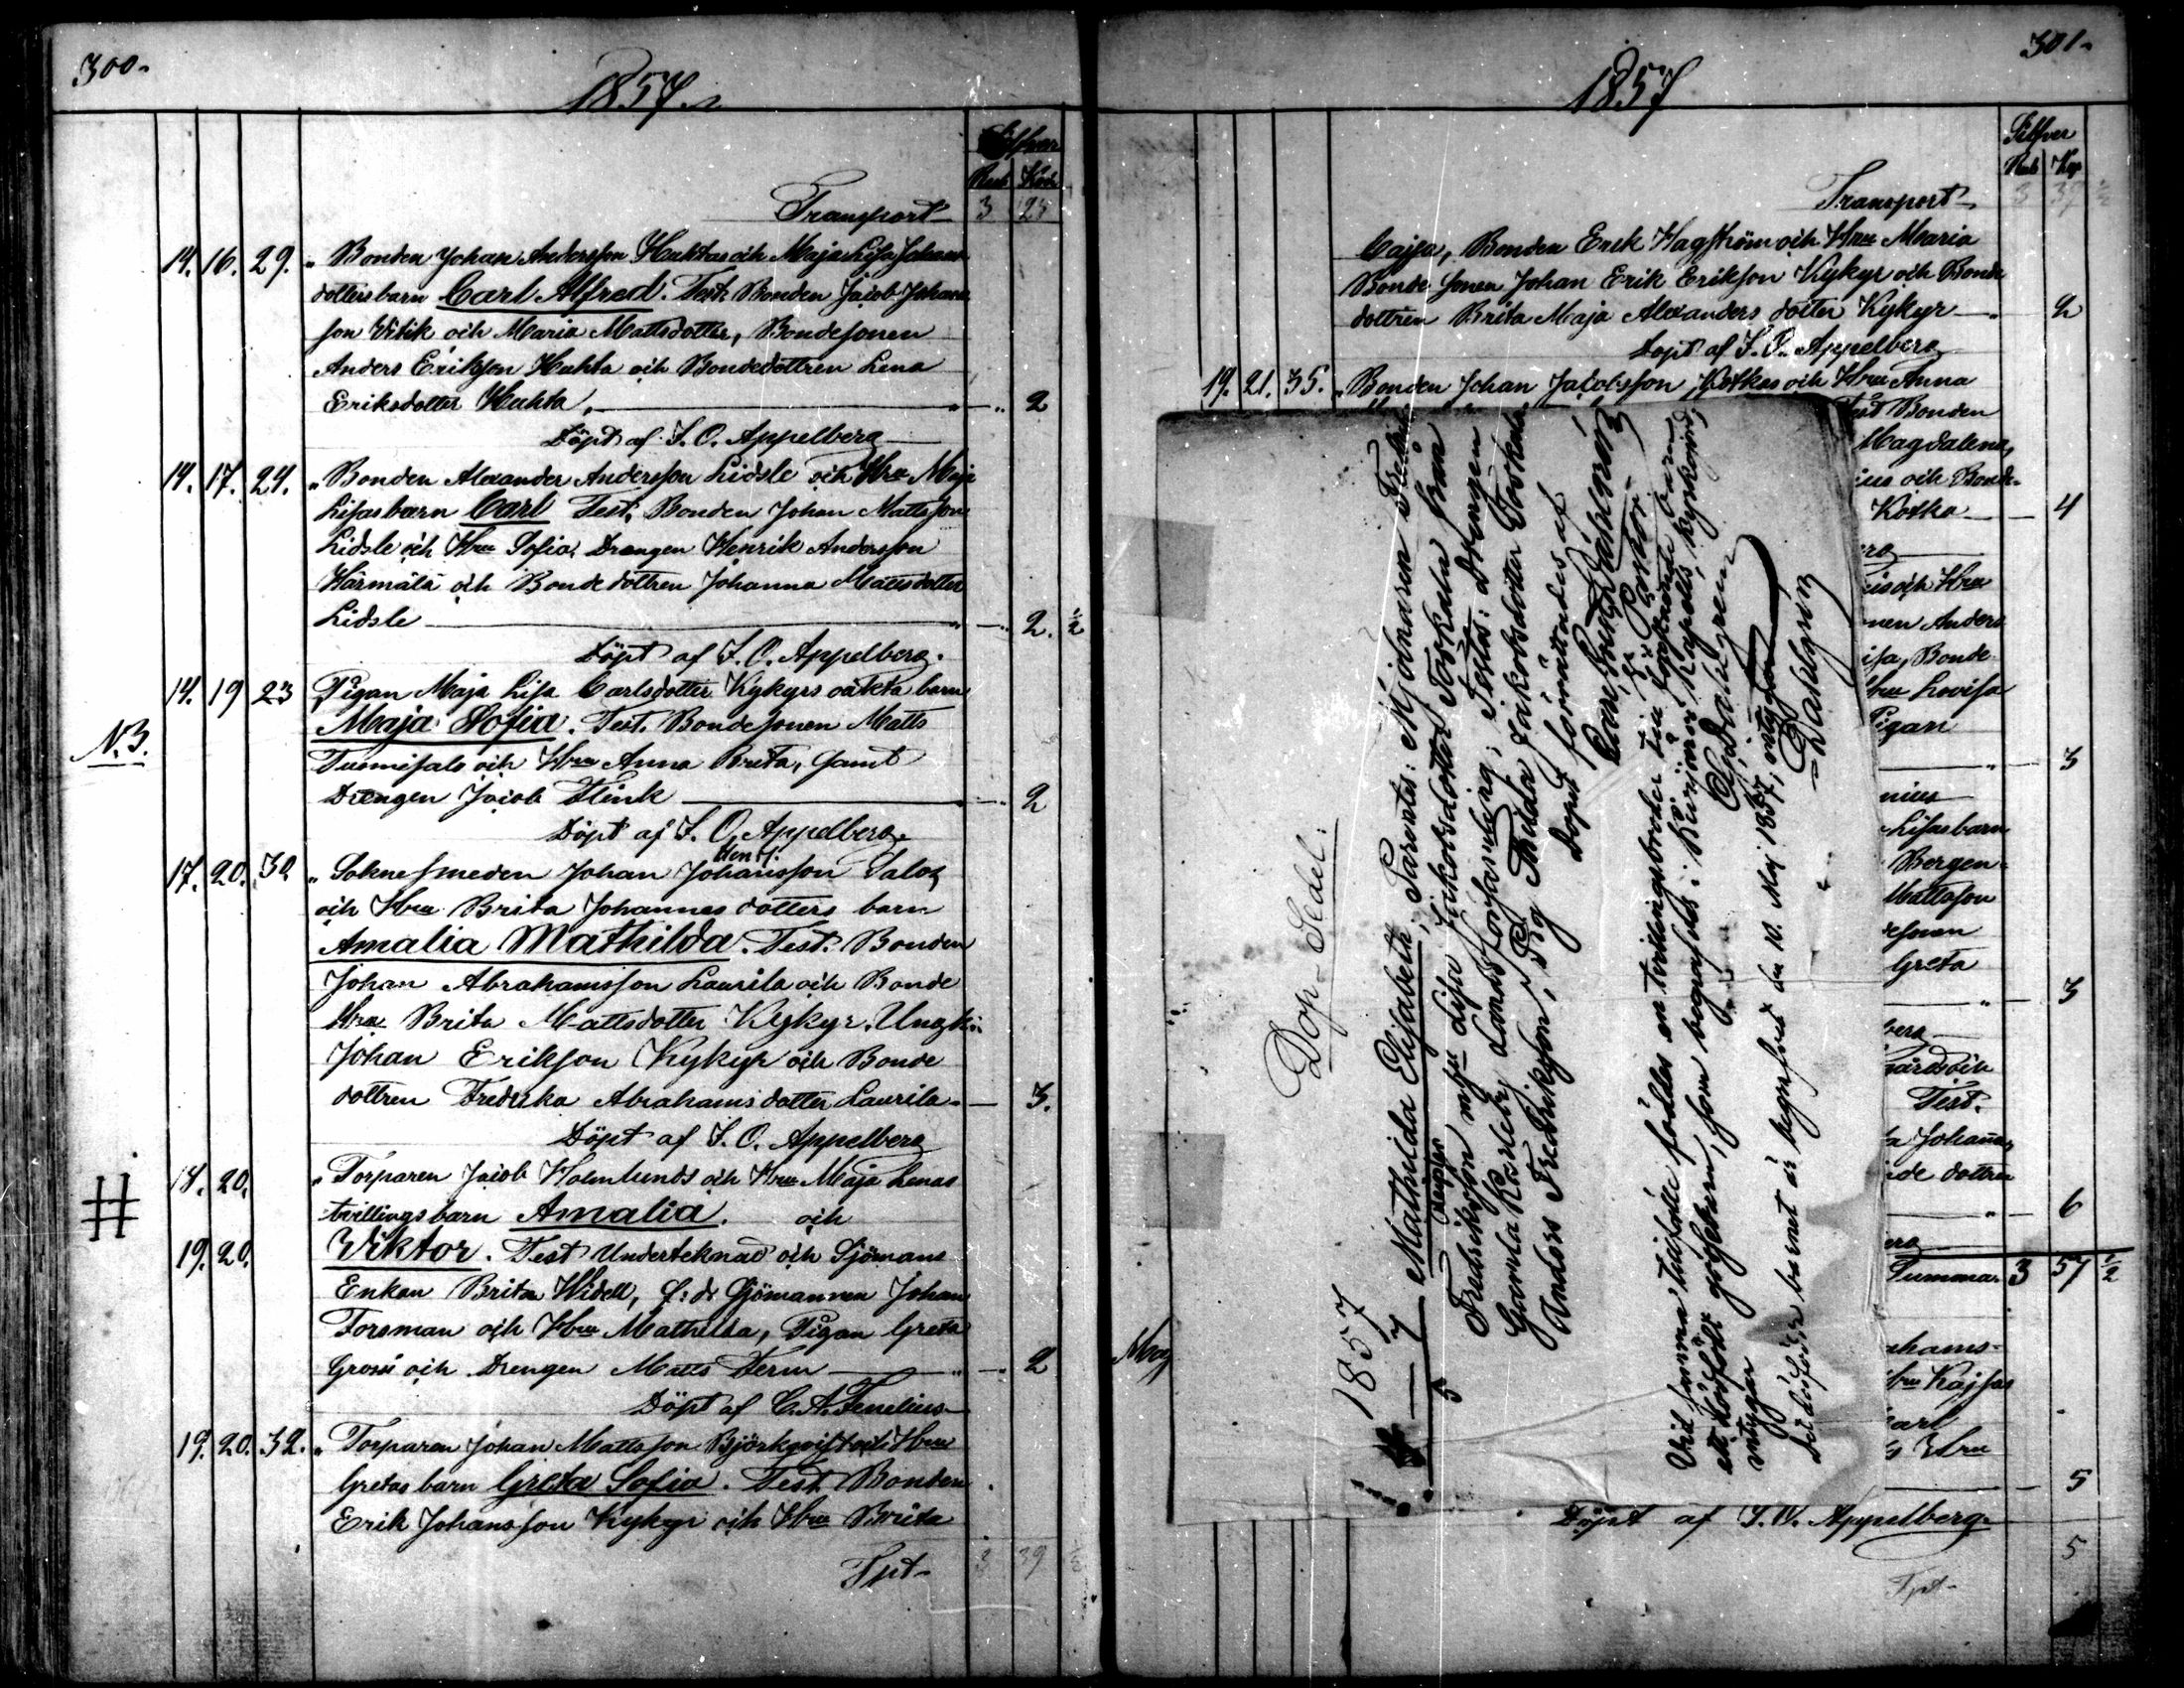 300.
1857.
Silfver
Rub. Kop.
Transport 3 28
14. 16. 29. " Bonden Johan Andersson Huhtas och Maja Lisa Johans
dotters barn Carl Alfred. Test. Bonden Jacob Johans
son Witik och Maria Mattsdotter, Bondesonen
Anders Eriksson Huhta och Bondedottren Lena
Eriksdotter Huhta, " 2
Döpt af I. O. Appelberg
14. 17. 24. " Bonden Alexander Andersson Lidsle och Hu Maja
Lisas barn Carl Test. Bonden Johan Mattsson
Lidsle och Hu Sofia, Drengen Henrik Andersson
Härmälä och Bondedottren Johanna Mattsdotter
Lidsle " 2. 1/2
Döpt af I. O. Appelberg.
N. 3.
14. 19 23 Pigan Maja Lisa Carlsdotter Kykyrs oäkta barn
Maja Sofia. Test. Bondesonen Matts
Tuomisalo och Hu Anna Brita, samt
Drengen Jacob Flink 2
Döpt af I. O. Appelberg.
17. 20. 30 " Soknesmeden Johan Johansson Salos
och Hu Brita Johannes dotters barn
Amalia Mathilda. Test. Bonden
Johan Abrahamsson Laurila och Bonde
Hu Brita Mattsdotter Kykyr. Ungk:
Johan Erikson Kykyr och Bonde
dottren Fredrika Abrahams dotter Laurila. 3.
Döpt af I. O. Appelberg
18. 20. " Torparen Jacob Holmlunds och Hu Maja Lenas
tvillingsbarn Amalia. och
19. 20. Wiktor. Test Undertecknad och Sjömans
Enkan Brita Widell, f: d: Sjömannen Johan
Forsman och Hu Mathilda, Pigan Greta
Gross och Drengen Matts Term " 2
Döpt af C. A. Fenelius
19. 20. 32. " Torparen Johan Mattsson Björkqvist och Hu
Gretas barn Greta Sofia. Test. Bonden
Erik Johansson Kykyr och Hu Brita
Tpt 3 39 1/2
301.
1857
Silfver
Rub Kop
Transport 3 39 1/2
Cajsa, Bonden Erik Hagström och Hu Maria
Bonde sonen Johan Erik Erikson Kykyr och Bonde
dottren Brita Maja Alexanders dotter Kykyr " 2
Döpt af I. O. Appelberg
19. 21. 35. " Bonden Johan Jacobsson Kotkas och Hu Anna
Test Bonden
Magdalena,
ius och Bonde-
Kotka 4
erg
is och Hu
nen Anders
isa, Bonde
Hu Lovisa
Pigan
" 3
nius
Lisas barn
Bergen-
Mattsson
sonen
Greta
" 3
berg
årds och
Test.
a Johanna,
nde dottren
" 6
erg
Summa 3 57 1/2
ahams-
Hu Kajsas
Carl
s Hu
5
Döpt af I. O. Appelberg.
5
Tpt
Maj
Dop-Sedel:
1857
5 7 Mathilda Elisabeth, Parentes: Mjölnaren Fredrik
Fredrikson m. hu Lisa Jakobsdotter Torkala från
Gamla Karleby Landsförsamling; Testes: Drengen
Anders Fredrikson, Pig. Thilda Jakobsdotter Torkala
Döpt förrättades af
Carl Joh. Dahlgren
V. Pastor
Vid samma tillfälle föddes en tvillingsbroder till förenämnde barn,
ett dödfödt gossebarn, som begrafdes i Kelviå Kapells kyrkogård,
intygar
Dahlgren
Det dödfödde barnet är begrafvet den 10. Maj 1857, intygar
Dahlgren